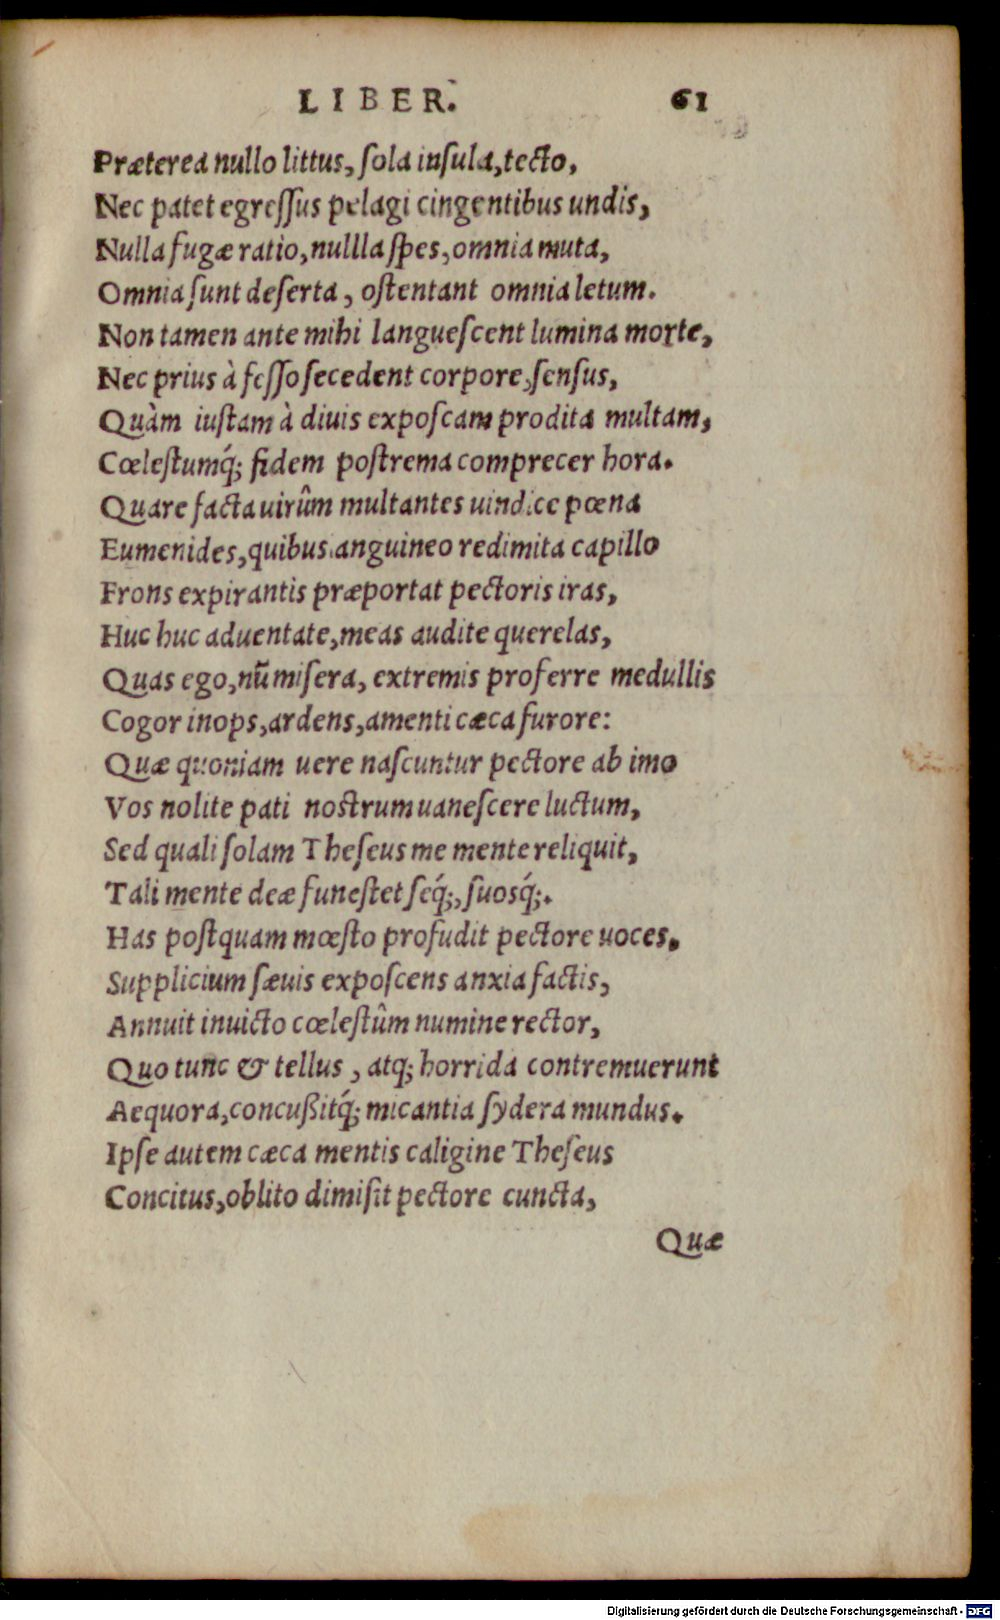 LIBER. 61
Præterea nullo littus, ſola inſula, tecto,
Nec patet egreſſus pelagi cingentibus undis,
Nulla fugæ ratio, nullla ſpes, omnia muta,
Omnia ſunt deſerta, oſtentant omnia letum.
Non tamen ante mihi langueſcent lumina morte,
Nec prius à feſſo ſecedent corpore, ſenſus,
Quàm iuſtam à diuis expoſcam prodita multam,
Cœleſtumq́; fidem poſtrema comprecer hora.
Quare facta uirûm multantes uindice pœna
Eumenides, quibus anguineo redimita capillo
Frons expirantis præportat pectoris iras,
Huc huc aduentate, meas audite querelas,
Quas ego, nũ miſera, extremis proferre medullis
Cogor inops, ardens, amenti cæca furore:
Quæ quoniam uere naſcuntur pectore ab imo
Vos nolite pati noſtrum uaneſcere luctum,
Sed quali ſolam Theſeus me mente reliquit,
Tali mente deæ funeſtet ſeq́;, ſuosq́;.
Has poſtquam mœſto profudit pectore uoces.
Supplicium ſæuis expoſcens anxia factis,
Annuit inuicto cœleſtûm numine rector,
Quo tunc & tellus, atq; horrida contremuerunt
Aequora, concußitq́; micantia ſydera mundus.
Ipſe autem cæca mentis caligine Theſeus
Concitus, oblito dimiſit pectore cuncta,
Quæ
Digitalisierung gefördert durch die Deutsche Forschungsgemeinschaft - DFG